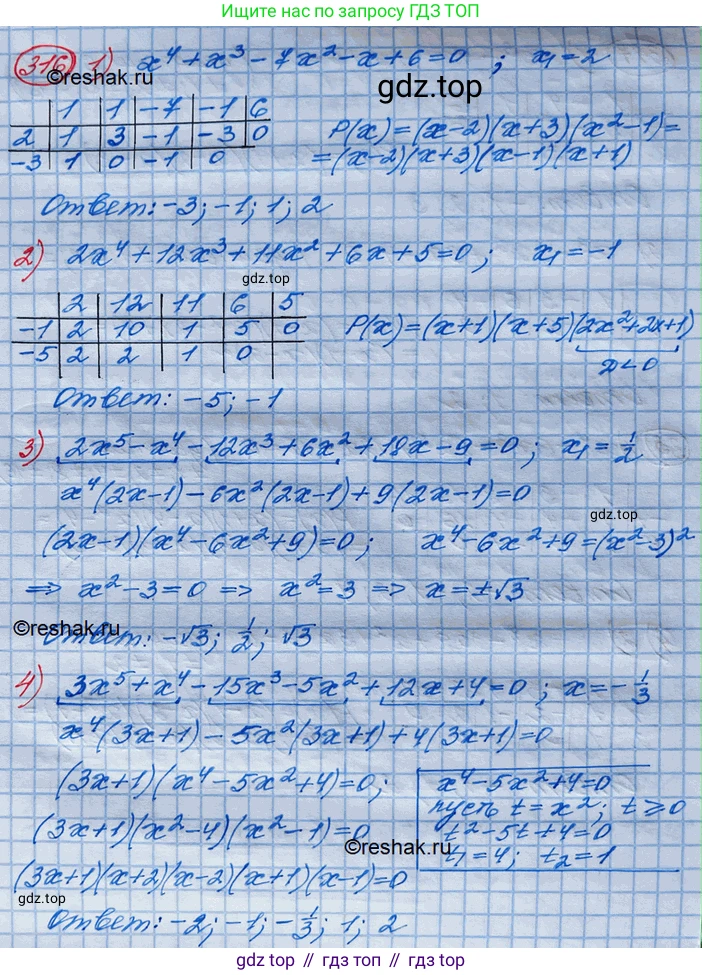 Ищите по запросу ГДЗ ТОП
316 1) x⁴ + x³ - 7x² - x + 6 = 0 ; x₁ = 2
©reshak.ru
gdz.top
1 | 1 | -7 | -1 | 6
2 | 1 | 3 | -1 | -3 | 0
-3 | 1 | 0 | -1 | 0
P(x) = (x-2)(x+3)(x²-1) =
= (x-2)(x+3)(x-1)(x+1)
Ответ: -3; -1; 1; 2
2) 2x⁴ + 12x³ + 11x² + 6x + 5 = 0 ; x₁ = -1
gdz.top
2 | 12 | 11 | 6 | 5
-1 | 2 | 10 | 1 | 5 | 0
-5 | 2 | 2 | 1 | 0
P(x) = (x+1)(x+5)(2x²+2x+1)
D < 0
Ответ: -5; -1
3) 2x⁵ - x⁴ - 12x³ + 6x² + 18x - 9 = 0 ; x₁ = 1/2
x⁴(2x-1) - 6x²(2x-1) + 9(2x-1) = 0
gdz.top
(2x-1)(x⁴ - 6x² + 9) = 0 ; x⁴ - 6x² + 9 = (x²-3)²
=> x² - 3 = 0 => x² = 3 => x = ±√3
©reshak.ru
Ответ: -√3; 1/2; √3
4) 3x⁵ + x⁴ - 15x³ - 5x² + 12x + 4 = 0 ; x = -1/3
x⁴(3x+1) - 5x²(3x+1) + 4(3x+1) = 0
(3x+1)(x⁴ - 5x² + 4) = 0;
(3x+1)(x²-4)(x²-1) = 0
(3x+1)(x+2)(x-2)(x+1)(x-1) = 0
x⁴ - 5x² + 4 = 0
пусть t = x²; t ≥ 0
t² - 5t + 4 = 0
t₁ = 4; t₂ = 1
©reshak.ru
Ответ: -2; -1; -1/3; 1; 2
gdz top / гдз топ / gdz.top